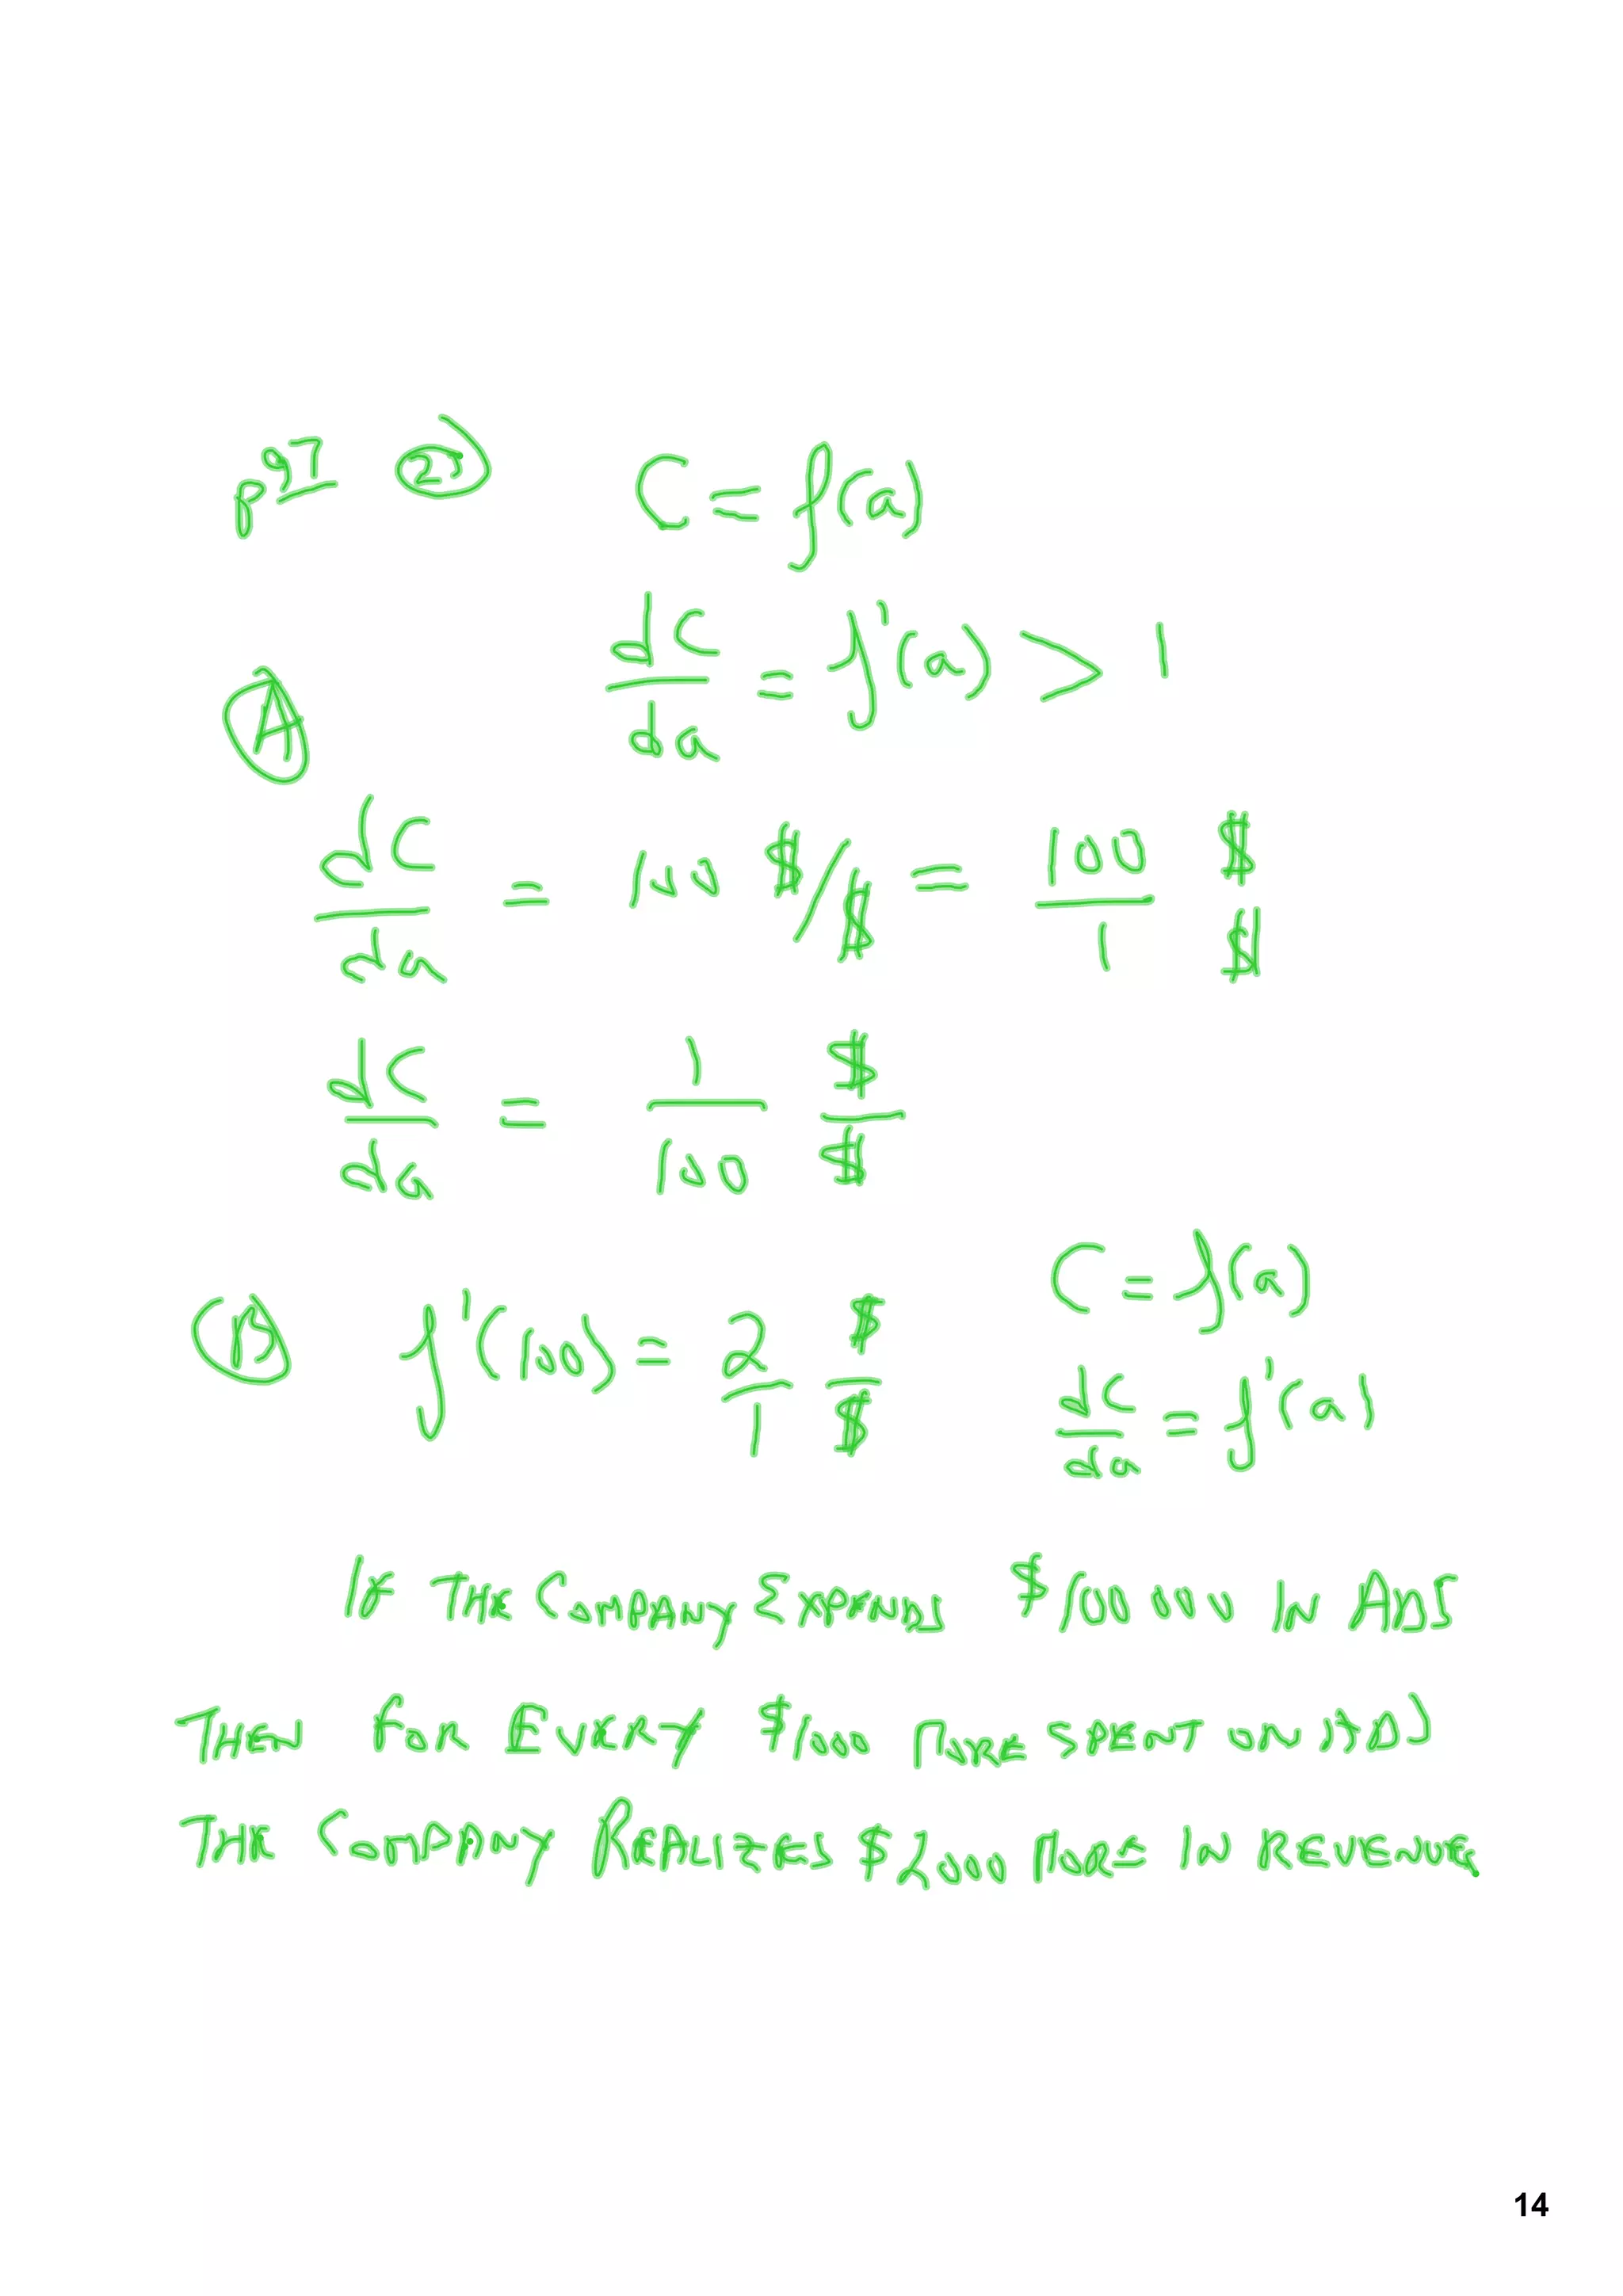 p97 23) C = f(a)
dC/da = f'(a) > 1
A
dC/da = 100 $/$ = 100/1 $/$
dC/da = 1/100 $/$
C = f(a)
B f'(100) = 2/1 $/$
dC/da = f'(a)
IF THE COMPANY EXPENDS $100 000 IN ADS
THEN FOR EVERY $1000 MORE SPENT ON ADS
THE COMPANY REALIZES $2000 MORE IN REVENUE.
14